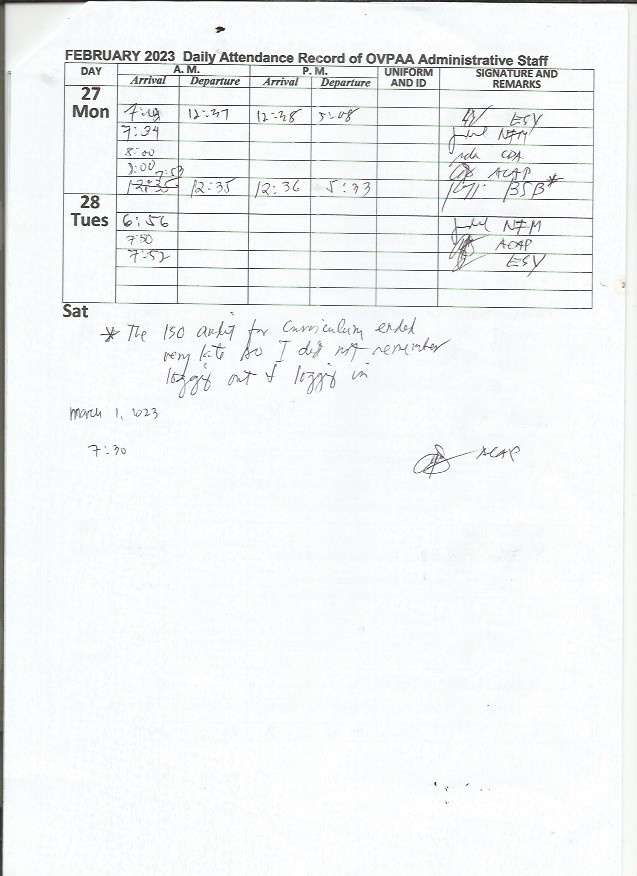 FEBRUARY 2023 Daily Attendance Record of OVPAA Administrative Staff
DAY A. M. P. M. UNIFORM AND ID SIGNATURE AND REMARKS
Arrival Departure Arrival Departure
27 Mon
12:37 12:38 5:08 ESY
7:34 NFM
8:00 CDA
8:00 ACAP
7:53 12:35 12:36 5:33 BSB*
28 Tues
6:56 NFM
7:50 ACAP
7:52 ESY
Sat
* The ISO audit for Curriculum ended
very late so I did not remember
loggig out & loggig in
March 1, 2023
7:30 ACAP